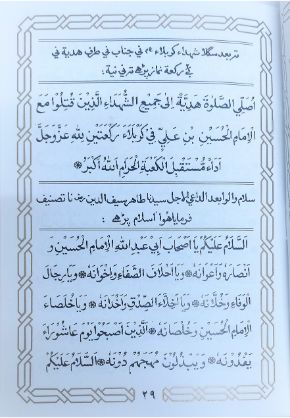 تربعد سگلا شهداء كربلاء ني جناب في طرف هدية ني
بے ركعة نماز پڑهے تر في نية:
أصلي الصلوة هدية إلى جميع الشهداء الذين قتلوا مع
الإمام الحسين بن علي في كربلاء ركعتين لله عز وجل
أداء مستقبل الكعبة الحرام الله أكبر
سلام والوابعد الداعي الاجل سيدنا طاهر سيف الدين رضنا تصنيف
فرمايا هوا سلام پڑهے :
السلام عليكم يا أصحاب أبي عبد الله الإمام الحسين و
أنصاره وأعوانه ويا أحلاف الصفاء وإخوانه ويا رجال
الوفاء وخلانه ويا أخلاء الصدق وأخدانه ويا خلصاء
الإمام الحسين وخلصانه الذين أصبحوا يوم عاشوراء
يفدونه ويبذلون مهجهم دونه السلام عليكم
٢٩